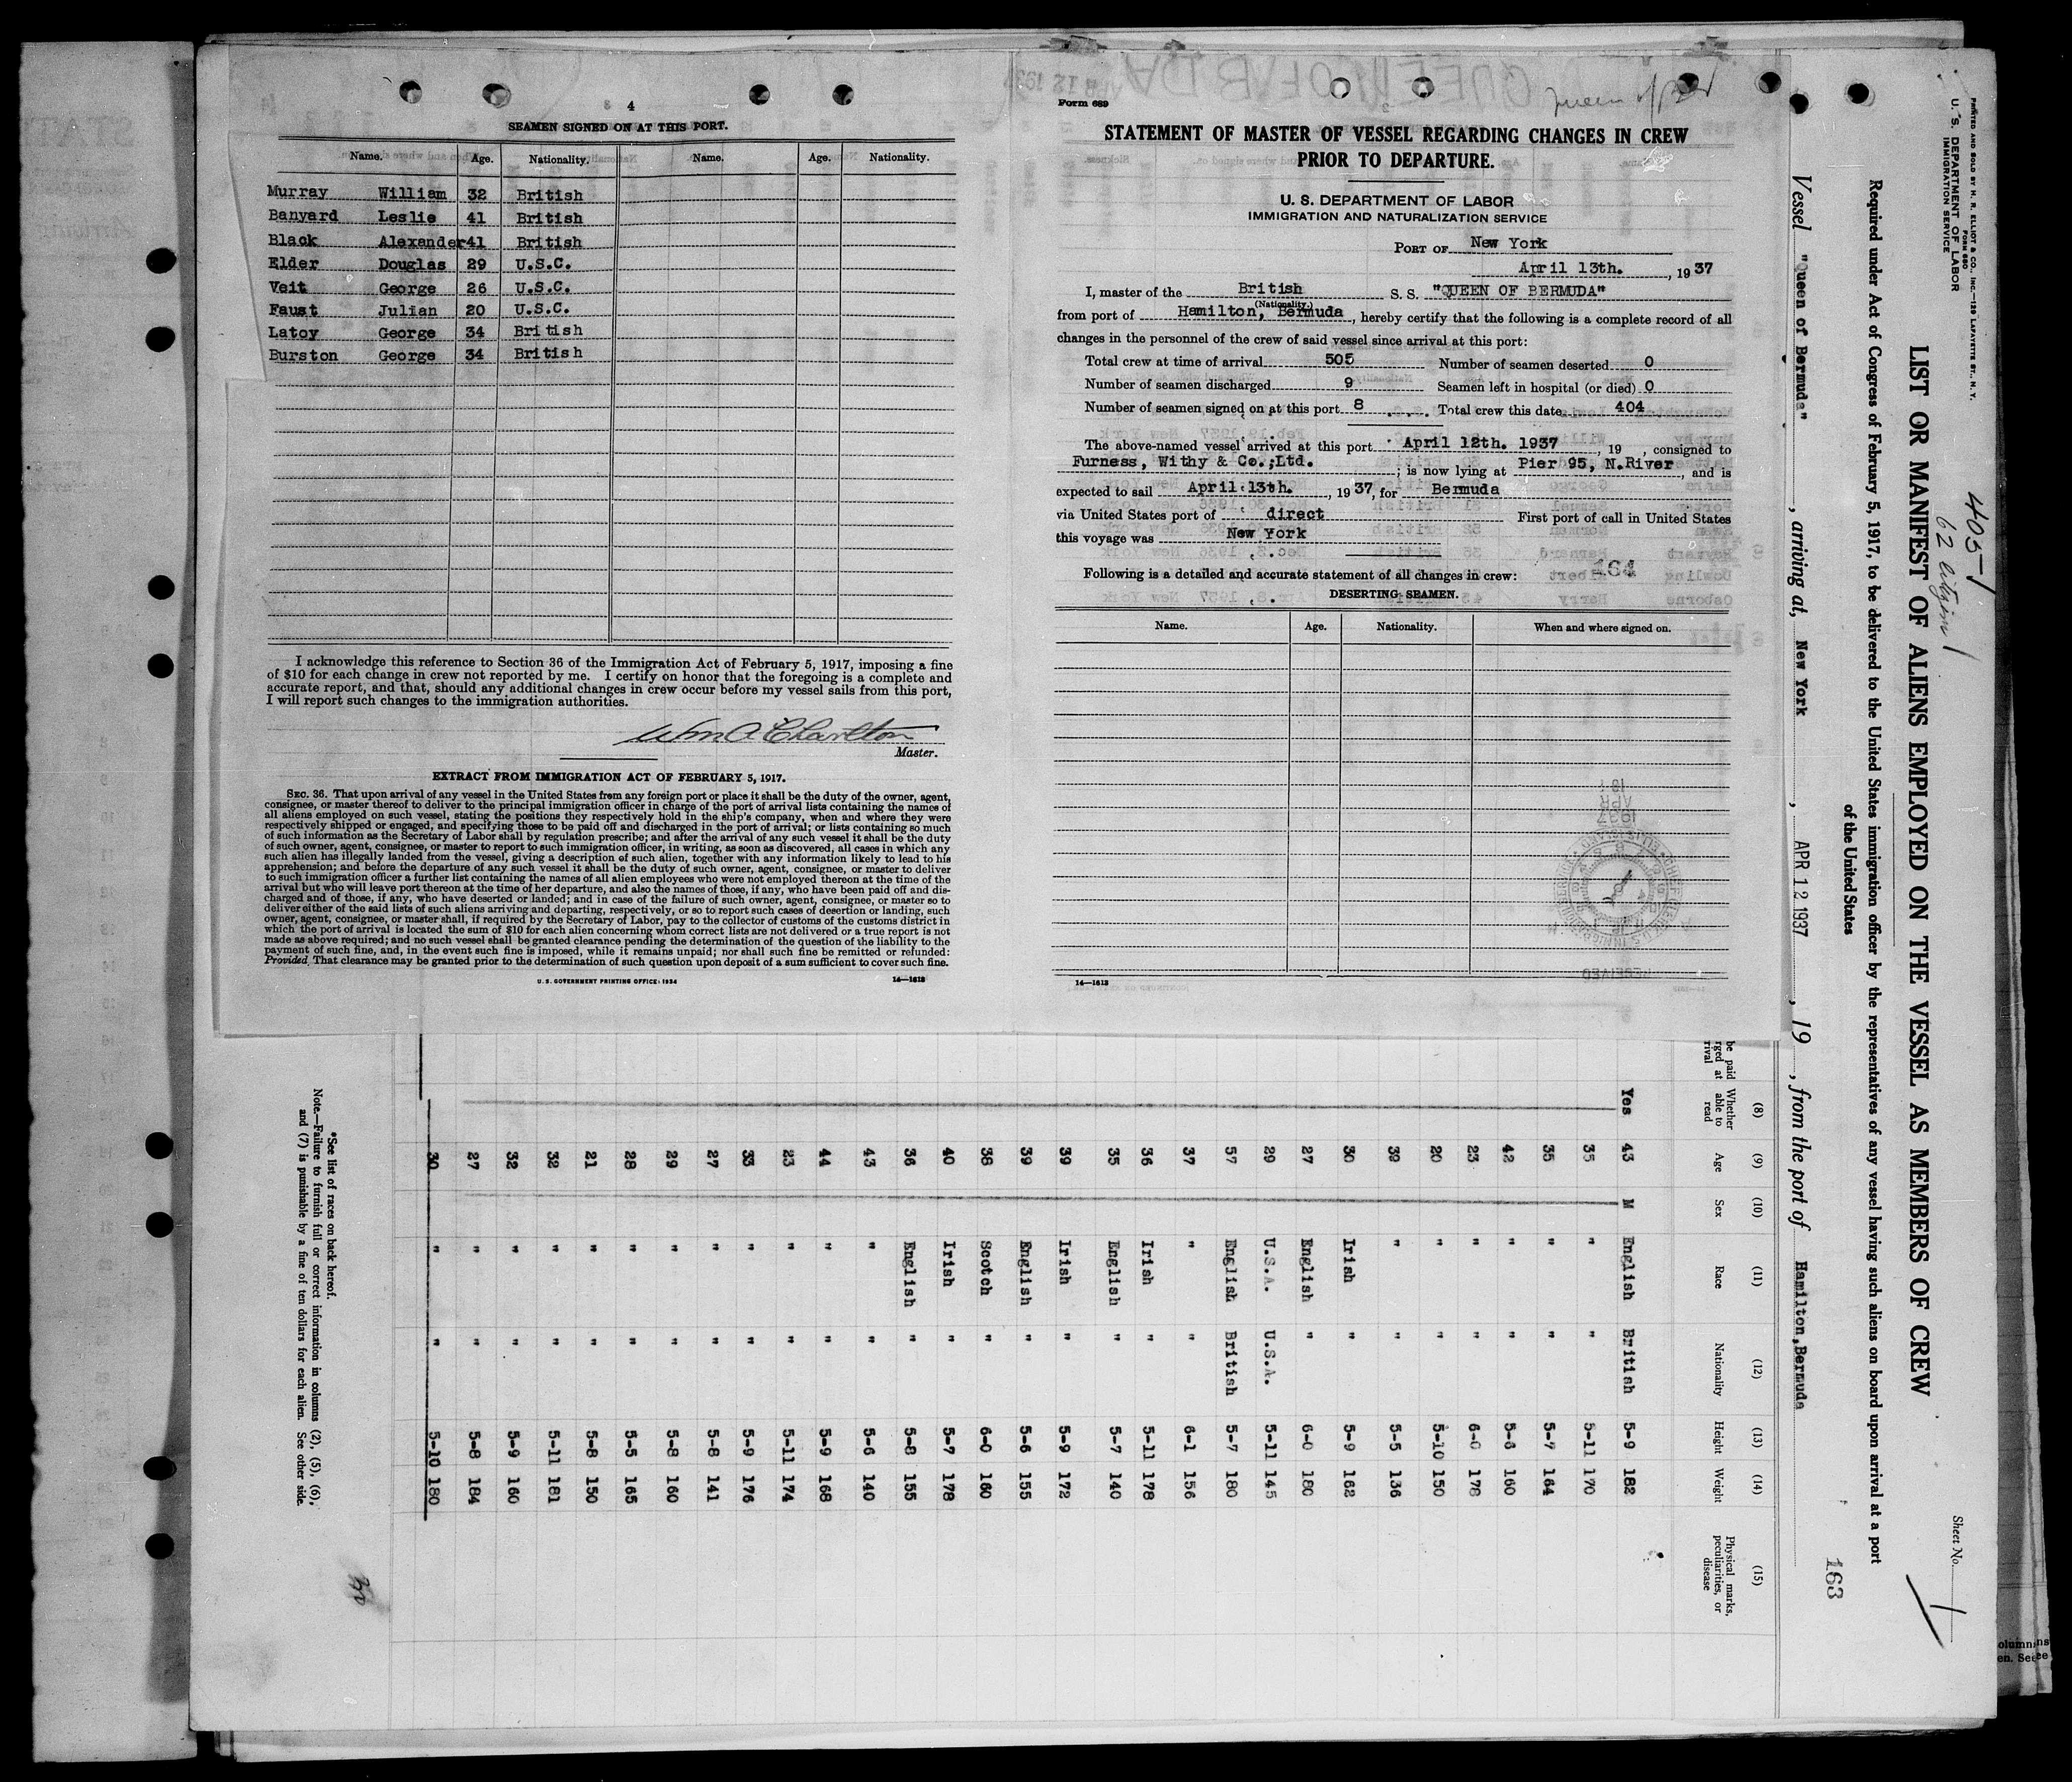 4
SEAMEN SIGNED ON AT THIS PORT.
Name. Age. Nationality. Name. Age. Nationality.
Murray William 32 British
Banyard Leslie 41 British
Black Alexander 41 British
Elder Douglas 29 U.S.C.
Veit George 26 U.S.C.
Faust Julian 20 U.S.C.
Latoy George 34 British
Burston George 34 British
I acknowledge this reference to Section 36 of the Immigration Act of February 5, 1917, imposing a fine
of $10 for each change in crew not reported by me. I certify on honor that the foregoing is a complete and
accurate report, and that, should any additional changes in crew occur before my vessel sails from this port,
I will report such changes to the immigration authorities.
Wm A Charlton
Master.
EXTRACT FROM IMMIGRATION ACT OF FEBRUARY 5, 1917.
SEC. 36. That upon arrival of any vessel in the United States from any foreign port or place it shall be the duty of the owner, agent,
consignee, or master thereof to deliver to the principal immigration officer in charge of the port of arrival lists containing the names of
all aliens employed on such vessel, stating the positions they respectively hold in the ship's company, when and where they were
respectively shipped or engaged, and specifying those to be paid off and discharged in the port of arrival; or lists containing so much
of such information as the Secretary of Labor shall by regulation prescribe; and after the arrival of any such vessel it shall be the duty
of such owner, agent, consignee, or master to report to such immigration officer, in writing, as soon as discovered, all cases in which any
such alien has illegally landed from the vessel, giving a description of such alien, together with any information likely to lead to his
apprehension; and before the departure of any such vessel it shall be the duty of such owner, agent, consignee, or master to deliver
to such immigration officer a further list containing the names of all alien employees who were not employed thereon at the time of the
arrival but who will leave port thereon at the time of her departure, and also the names of those, if any, who have been paid off and dis-
charged and of those, if any, who have deserted or landed; and in case of the failure of such owner, agent, consignee, or master so to
deliver either of the said lists of such aliens arriving and departing, respectively, or so to report such cases of desertion or landing, such
owner, agent, consignee, or master shall, if required by the Secretary of Labor, pay to the collector of customs of the customs district in
which the port of arrival is located the sum of $10 for each alien concerning whom correct lists are not delivered or a true report is not
made as above required; and no such vessel shall be granted clearance pending the determination of the question of the liability to the
payment of such fine, and, in the event such fine is imposed, while it remains unpaid; nor shall such fine be remitted or refunded:
Provided, That clearance may be granted prior to the determination of such question upon deposit of a sum sufficient to cover such fine.
U. S. GOVERNMENT PRINTING OFFICE: 1934 14—1613
Form 689
Queen of Ber
STATEMENT OF MASTER OF VESSEL REGARDING CHANGES IN CREW
PRIOR TO DEPARTURE.
U. S. DEPARTMENT OF LABOR
IMMIGRATION AND NATURALIZATION SERVICE
PORT OF New York
April 13th. , 19 37
I, master of the British S. S. "QUEEN OF BERMUDA"
(Nationality.)
from port of Hamilton, Bermuda, hereby certify that the following is a complete record of all
changes in the personnel of the crew of said vessel since arrival at this port:
Total crew at time of arrival 505 Number of seamen deserted 0
Number of seamen discharged 9 Seamen left in hospital (or died) 0
Number of seamen signed on at this port 8 Total crew this date 404
The above-named vessel arrived at this port April 12th. 1937 , 19 , consigned to
Furness, Withy & Co.,Ltd. ; is now lying at Pier 95, N.River, and is
expected to sail April 13th. , 19 37, for Bermuda
via United States port of direct First port of call in United States
this voyage was New York
Following is a detailed and accurate statement of all changes in crew: 164
DESERTING SEAMEN.
Name. Age. Nationality. When and where signed on.
14—1613
PRINTED AND SOLD BY H. R. ELLIOT & CO., INC.—129 LAFAYETTE ST., N. Y.
FORM 680
U. S. DEPARTMENT OF LABOR
IMMIGRATION SERVICE
405-1
Sheet No. 1
LIST OR MANIFEST OF ALIENS EMPLOYED ON THE VESSEL AS MEMBERS OF CREW
Required under Act of Congress of February 5, 1917, to be delivered to the United States immigration officer by the representatives of any vessel having such aliens on board upon arrival at a port
of the United States
163
Vessel "Queen of Bermuda" , arriving at, New York , APR 12 1937 , 19 , from the port of Hamilton,Bermuda
(8) (9) (10) (11) (12) (13) (14) (15)
be paid
rged at
rival
Whether able to read Age Sex Race Nationality Height Weight Physical marks, peculiarities, or disease
Yes 43 M English British 5-9 182
35 " " 5-11 170
35 " " 5-7 164
42 " " 5-8 160
23 " " 6-0 178
20 " " 5-10 150
39 " " 5-5 136
30 Irish " 5-9 162
27 English " 6-0 180
29 U.S.A. U.S.A. 5-11 145
57 English British 5-7 180
37 " " 6-1 156
36 Irish " 5-11 178
35 English " 5-7 140
39 Irish " 5-9 172
39 English " 5-6 155
38 Scotch " 6-0 160
40 Irish " 5-7 178
36 English " 5-8 155
43 " " 5-6 140
44 " " 5-9 168
23 " " 5-11 174
33 " " 5-9 176
27 " " 5-8 141
29 " " 5-8 160
28 " " 5-5 165
21 " " 5-8 150
32 " " 5-11 181
32 " " 5-9 160
27 " " 5-8 184
30 " " 5-10 180
*See list of races on back hereof.
Note.—Failure to furnish full or correct information in columns (2), (5), (6),
and (7) is punishable by a fine of ten dollars for each alien. See other side.